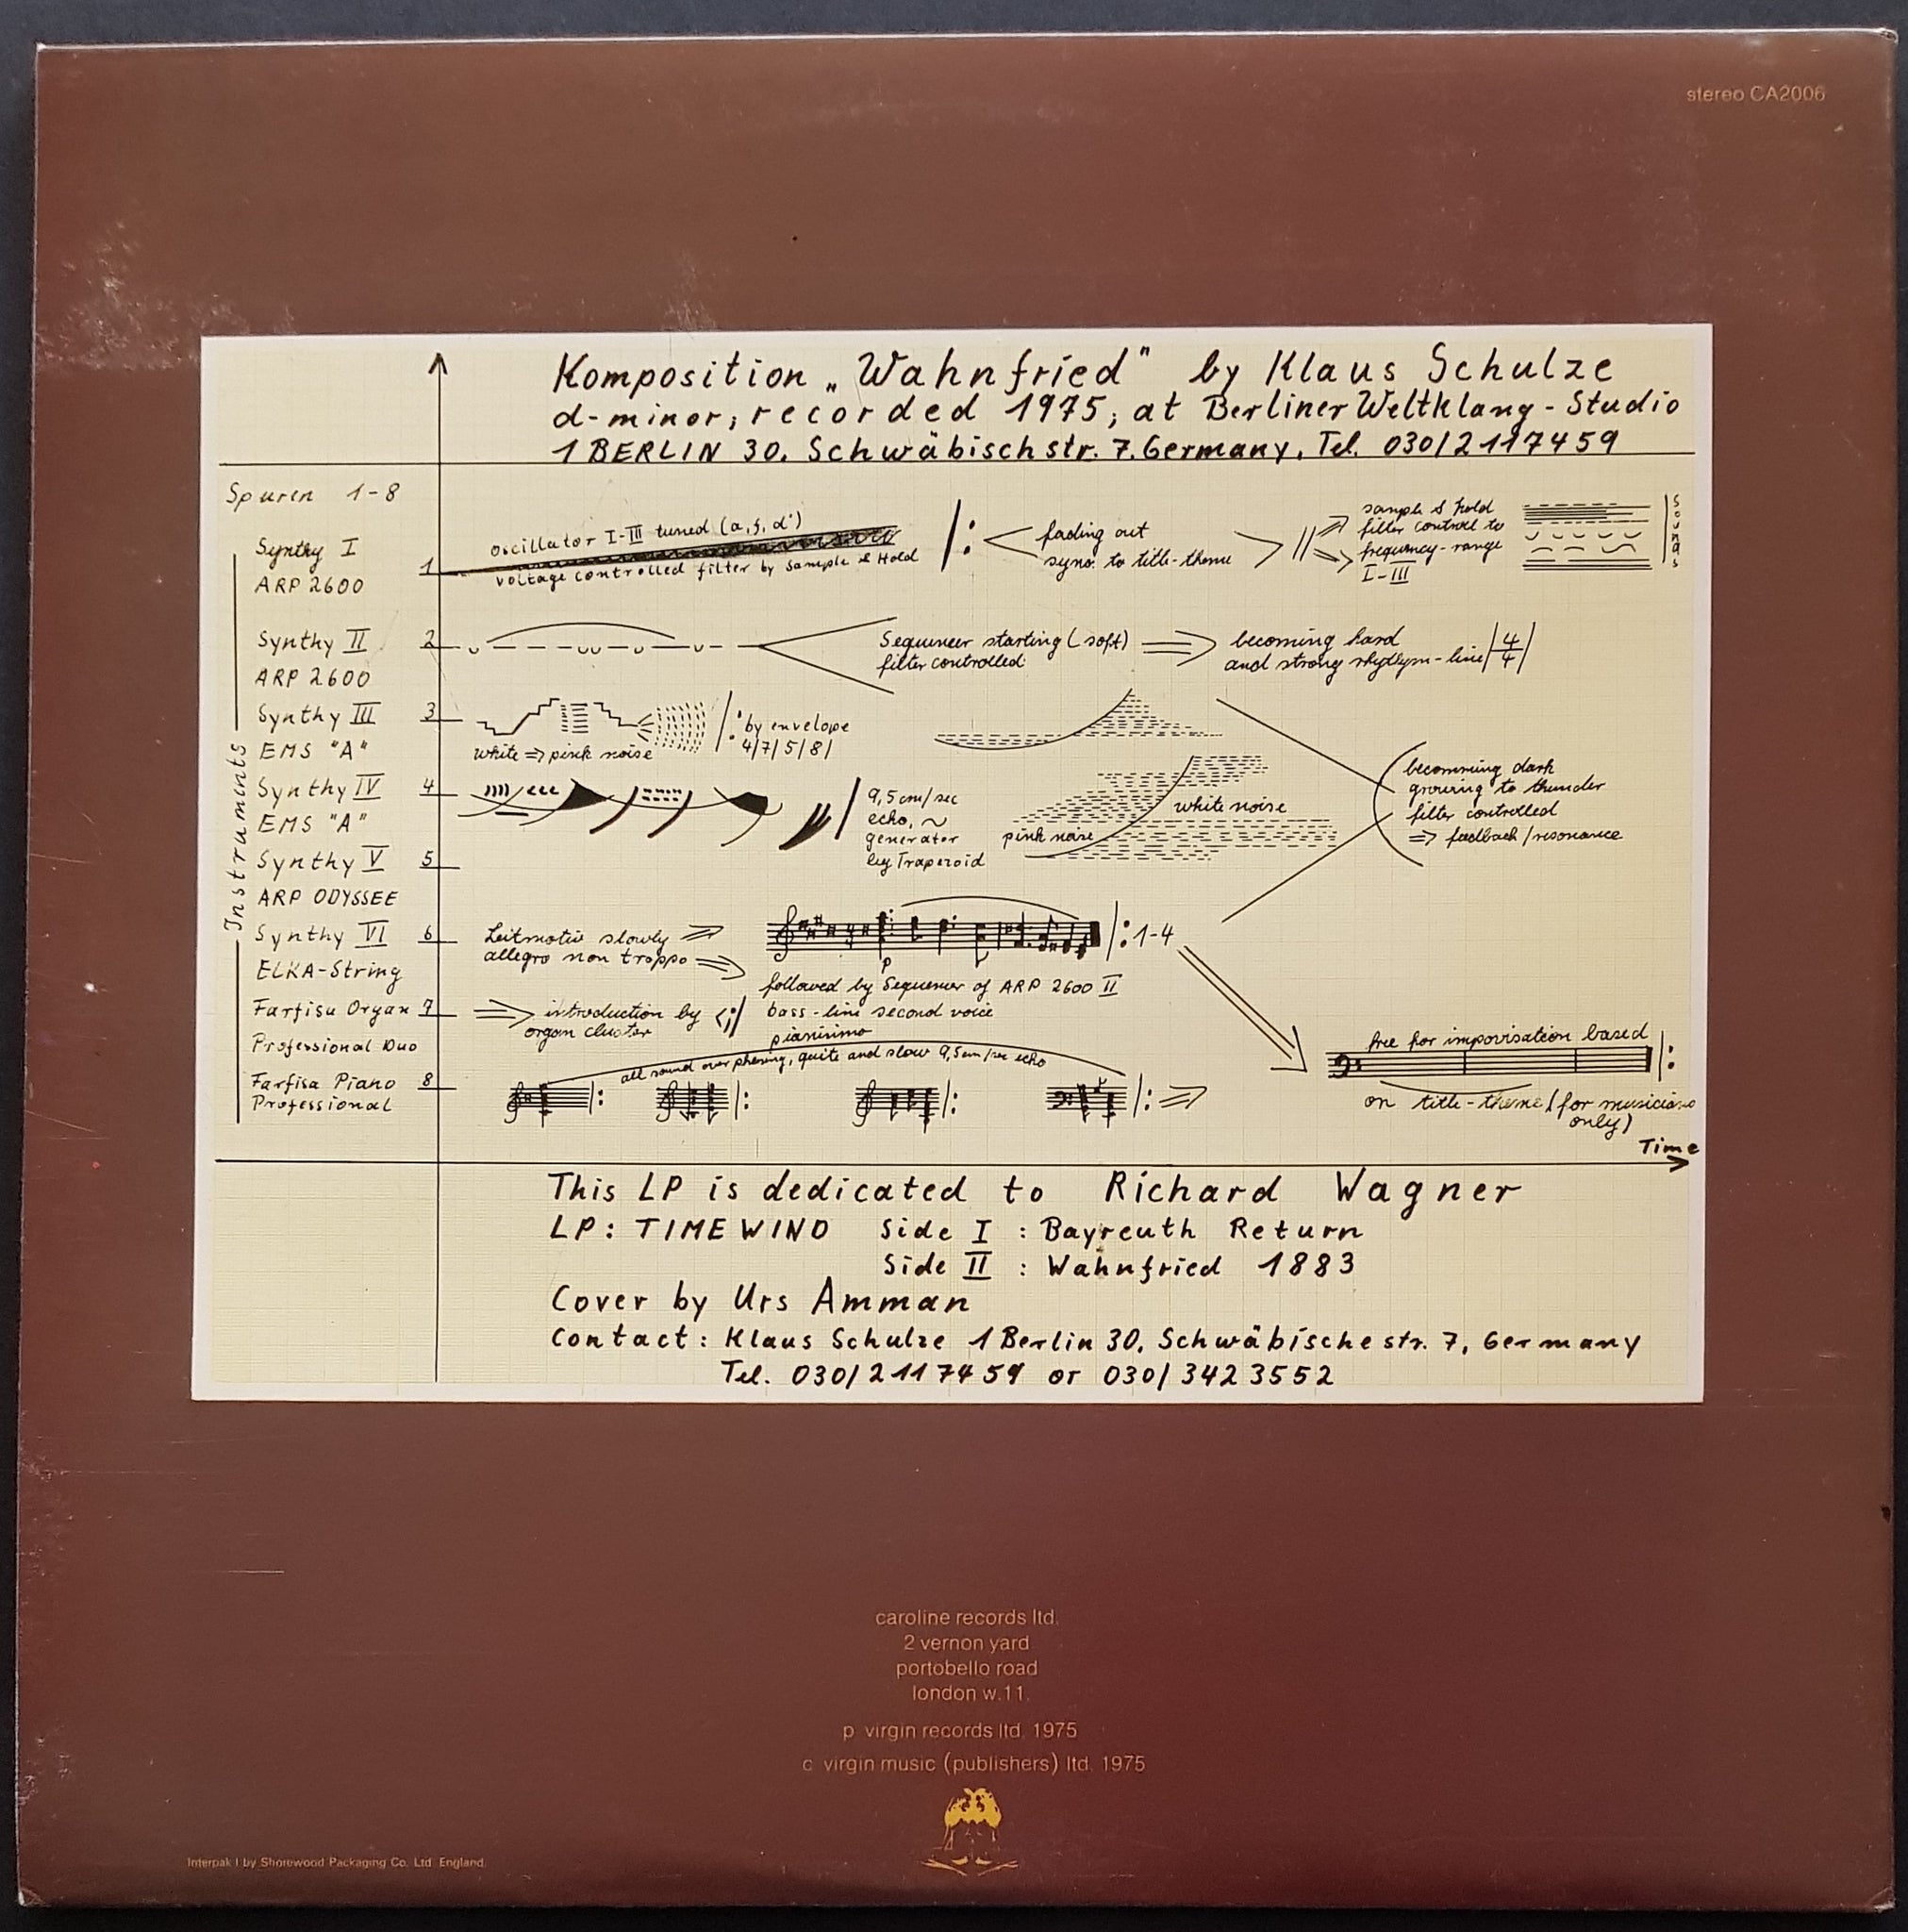 stereo CA2006
Komposition „Wahnfried" by Klaus Schulze
d-minor; recorded 1975, at Berliner Weltklang-Studio
1 BERLIN 30. Schwäbischstr. 7. Germany. Tel. 030/2117459
Spuren 1-8
Instruments
Synthy I
ARP 2600
1
oscillator I-III tuned (a, f, d')
voltage controlled filter by Sample & Hold
fading out
sync. to title-theme
sample & hold
filter control to
frequency-range
I-III
Sounds
Synthy II
ARP 2600
2
Sequencer starting (soft)
filter controlled
becoming hard
and strong rhythym-line
4/4
Synthy III
EMS "A"
3
white ⇒ pink noise
by envelope
4/7/5/8/
Synthy IV
EMS "A"
4
9,5 cm/sec
echo, ~
generator
by Trapezoid
pink noise
white noise
becomming dark
growing to thunder
filter controlled
⇒ feedback/resonance
Synthy V
ARP ODYSSEE
5
Synthy VI
ELKA-String
6
Leitmotiv slowly
allegro non troppo
p
1-4
followed by Sequencer of ARP 2600 II
bass-line second voice
pianisimo
Farfisa Organ
Professional Duo
7
introduction by
organ cluster
Farfisa Piano
Professional
8
all sound over phasing, quite and slow 9,5cm/sec echo
free for improvisation based
on title-theme (for musicians
only)
Time
This LP is dedicated to Richard Wagner
LP: TIMEWIND Side I : Bayreuth Return
Side II : Wahnfried 1883
Cover by Urs Amman
Contact: Klaus Schulze 1 Berlin 30. Schwäbischestr. 7, Germany
Tel. 030/2117459 or 030/3423552
caroline records ltd.
2 vernon yard
portobello road
london w.11.
p virgin records ltd. 1975
c virgin music (publishers) ltd. 1975
Interpak I by Shorewood Packaging Co. Ltd. England.